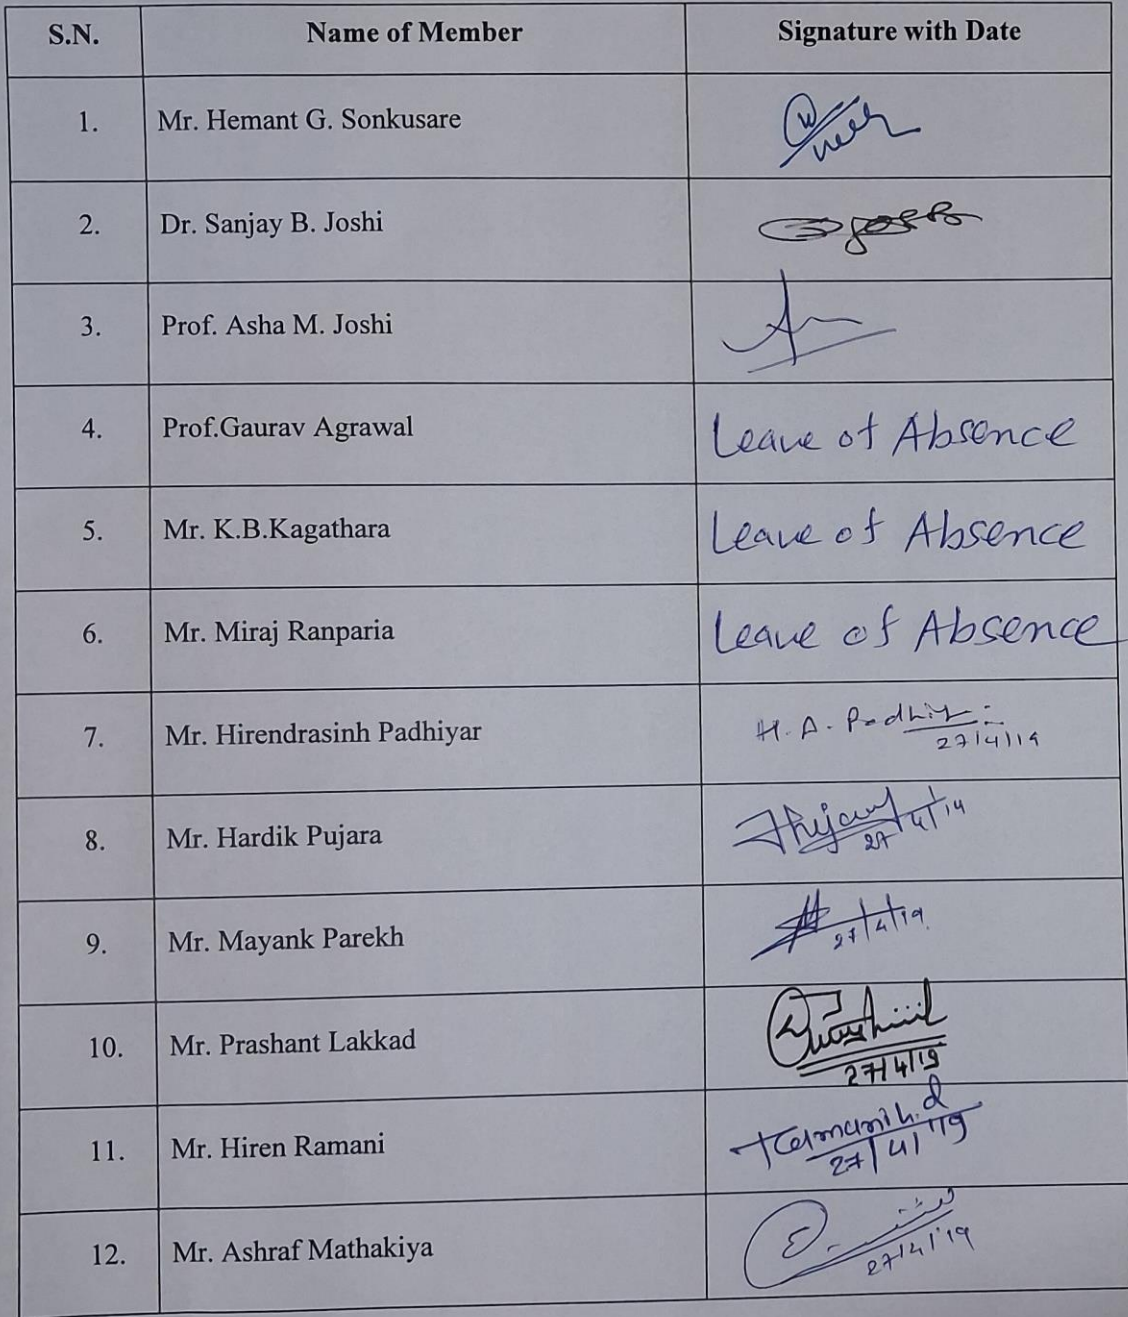 S.N. Name of Member Signature with Date
1. Mr. Hemant G. Sonkusare
2. Dr. Sanjay B. Joshi
3. Prof. Asha M. Joshi
4. Prof.Gaurav Agrawal Leave of Absence
5. Mr. K.B.Kagathara Leave of Absence
6. Mr. Miraj Ranparia Leave of Absence
7. Mr. Hirendrasinh Padhiyar H. A. Padhiyar
27/4/19
8. Mr. Hardik Pujara
27/4/19
9. Mr. Mayank Parekh
27/4/19
10. Mr. Prashant Lakkad
27/4/19
11. Mr. Hiren Ramani Ramani h.d
27/4/19
12. Mr. Ashraf Mathakiya
27/4/19